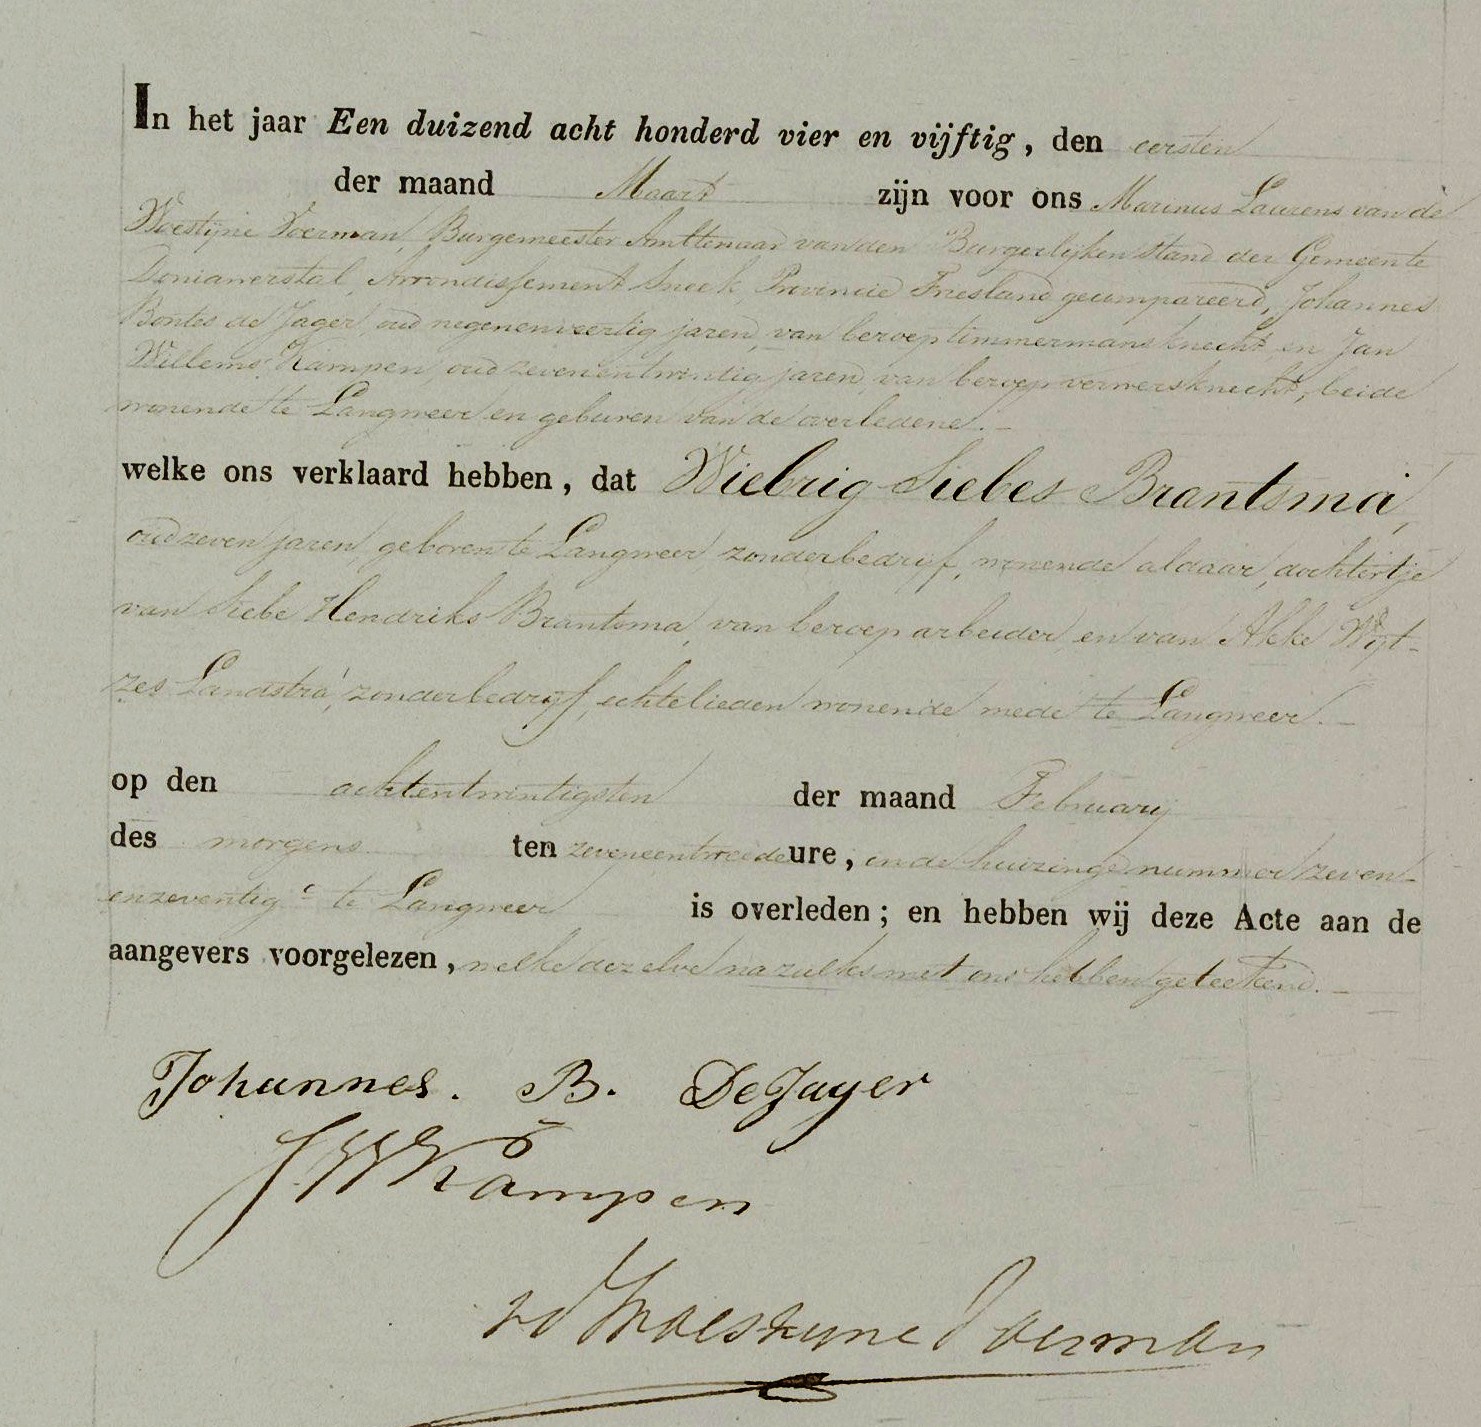 In het jaar Een duizend acht honderd vier en vijftig, den eersten
der maand Maart zijn voor ons Marinus Laurens van de
Woestijne Voerman, Burgemeester Ambtenaar van den Burgerlijken Stand der Gemeente
Doniawerstal, Arrondissement Sneek, Provincie Friesland gecompareerd, Johannes
Bontes de Jager, oud negenenveertig jaren, van beroep timmermansknecht, en Jan
Willems Kampen, oud zevenentwintig jaren, van beroep ververs knecht, beide
wonende te Langweer en geburen van de overledene. —
welke ons verklaard hebben, dat Wiebrig Siebes Brantsma,
oud zeven jaren, geboren te Langweer zonder bedrijf, wonende aldaar, dochtertje
van Siebe Hendriks Brantsma, van beroep arbeider, en van Akke Wijt-
zes Landstra, zonder bedrijf, echtelieden wonende mede te Langweer. —
op den achtentwintigsten der maand Februarij
des morgens ten zeveneentweede ure, in de huizinge nummer zeven-
enzeventig c te Langweer is overleden; en hebben wij deze Acte aan de
aangevers voorgelezen, welke dezelve na zulks met ons hebben geteekend. —
Johannes. B. De Jager
J W Kampen
vd Woestyne Voerman